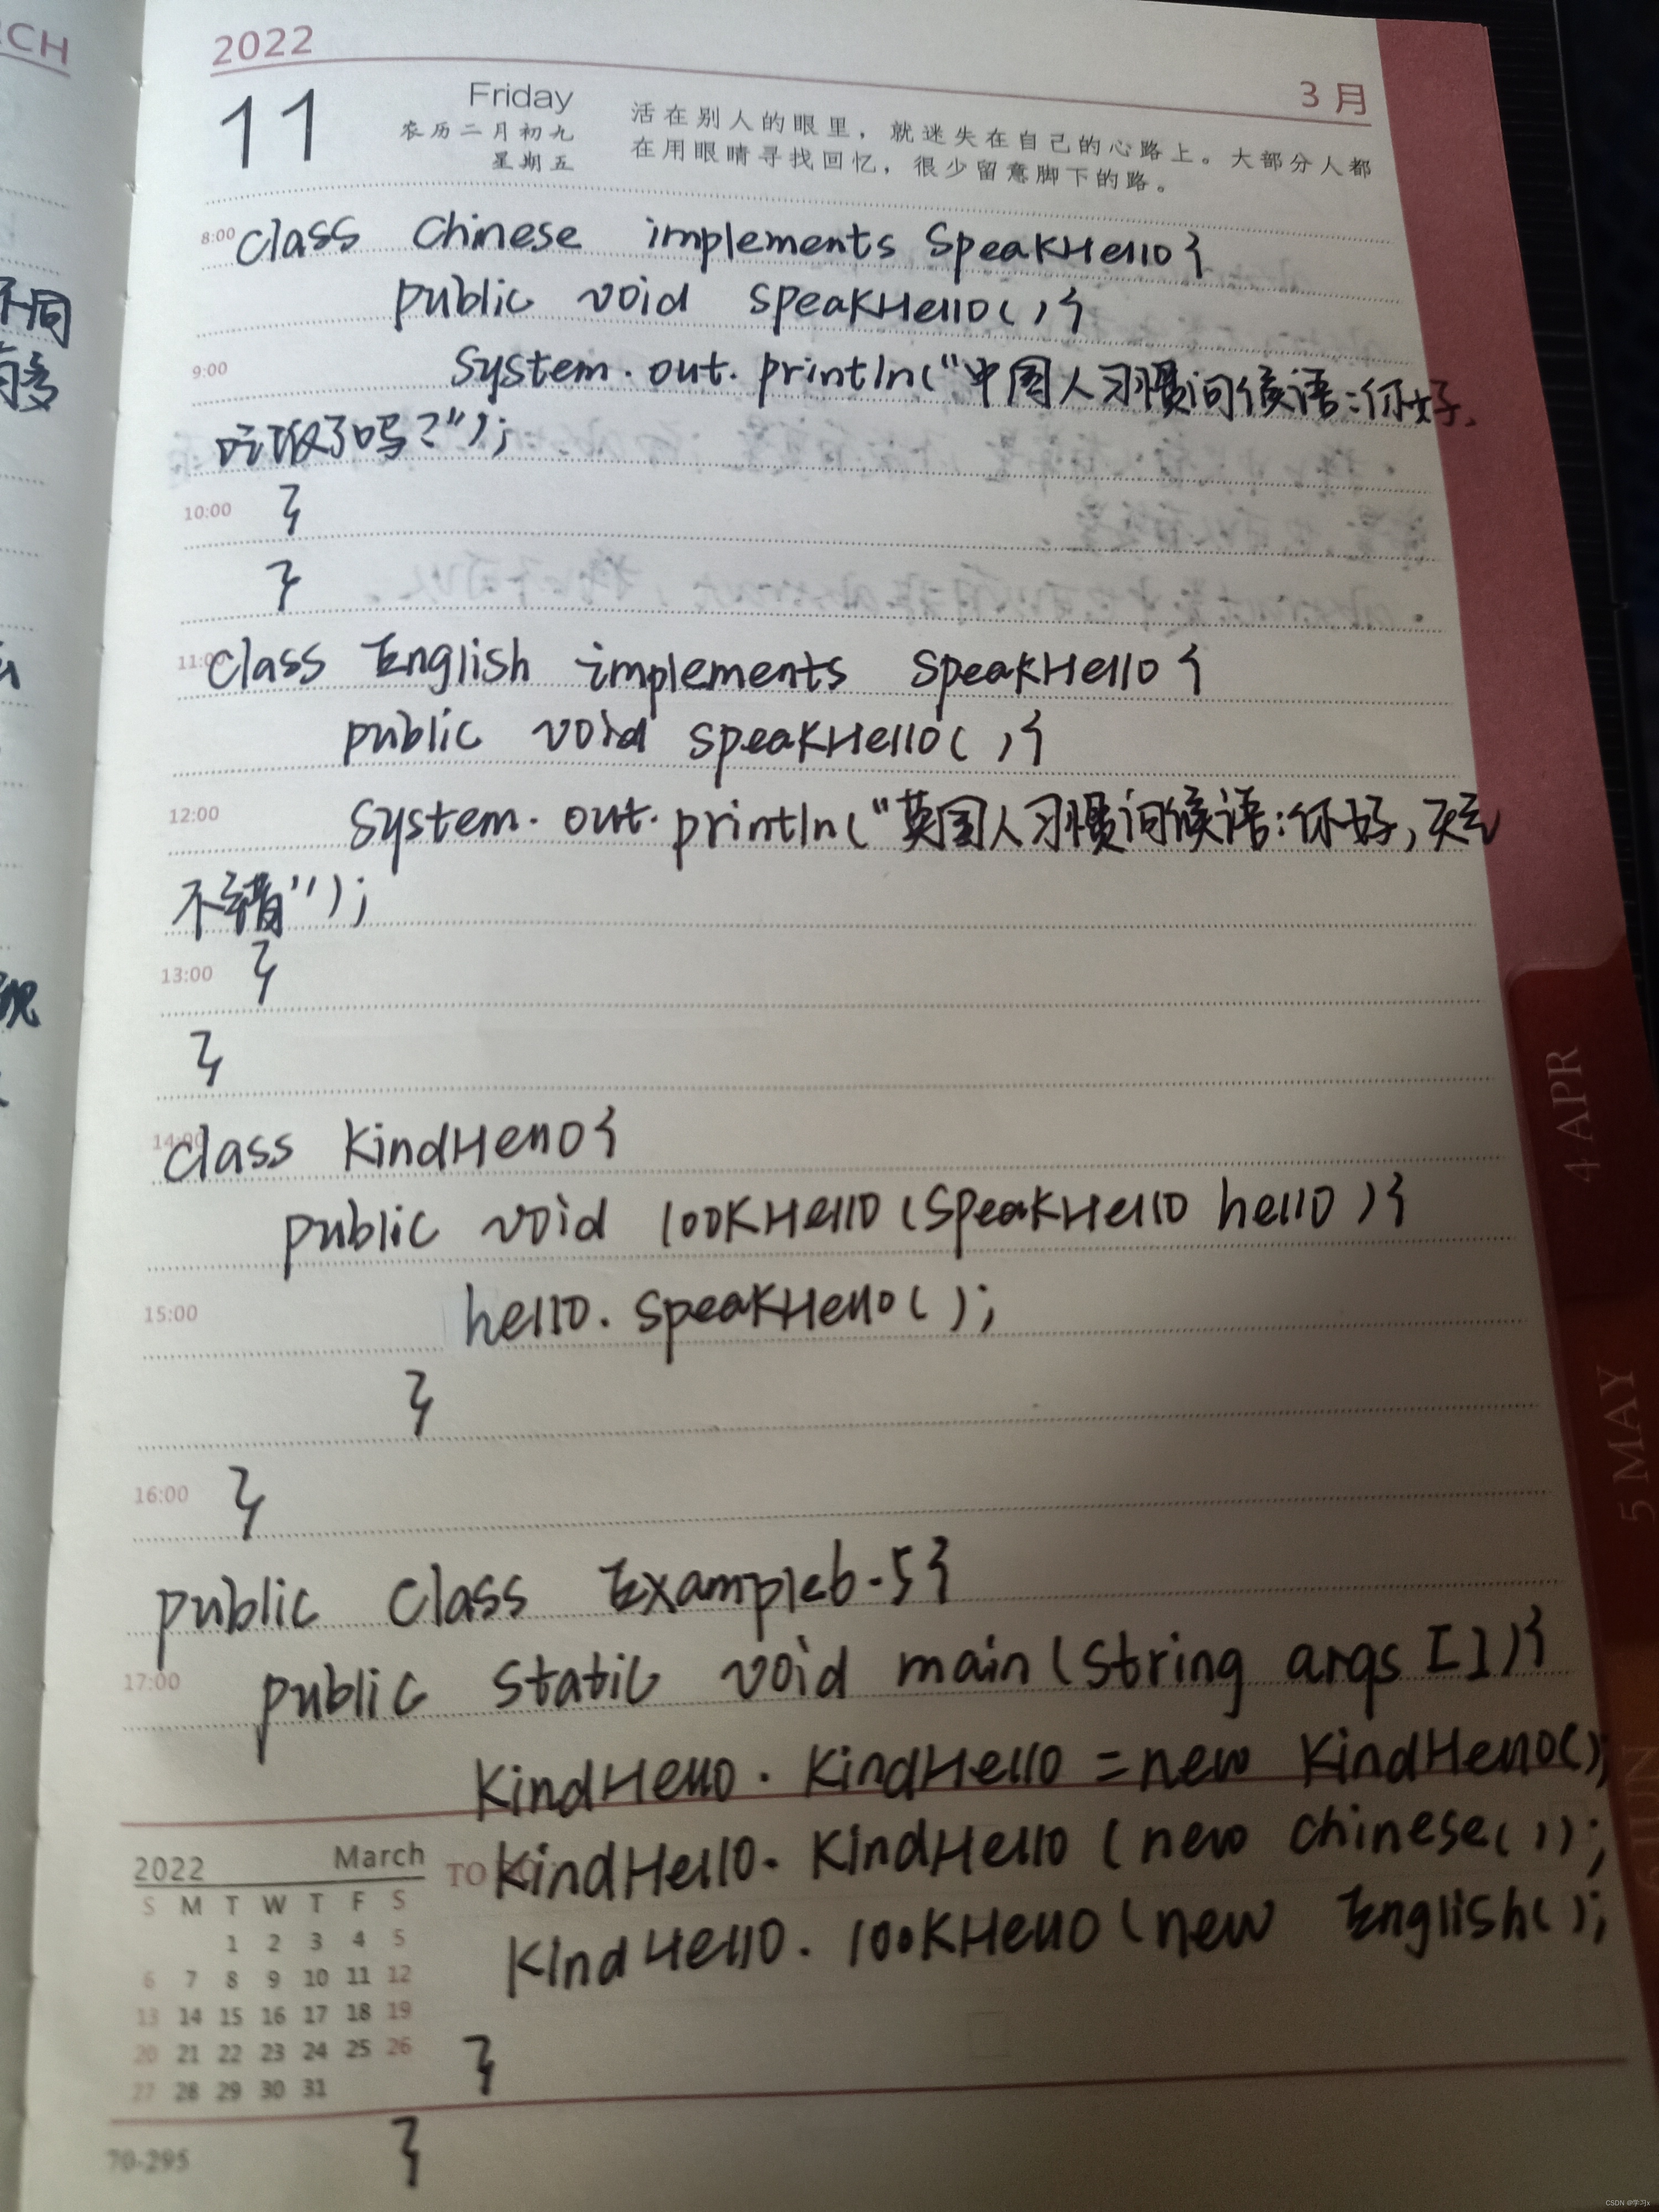 RCH
2022
3 月
11
Friday
农历二月初九
星期五
活在别人的眼里，就迷失在自己的心路上。大部分人都
在用眼睛寻找回忆，很少留意脚下的路。
8:00 class Chinese implements SpeakHello{
public void speakHello(){
9:00 System.out.println("中国人习惯问候语:你好,
吃饭了吗?");
10:00 }
}
11:00 class English implements SpeakHello{
public void speakHello(){
12:00 System.out.println("英国人习惯问候语:你好,天气
不错");
13:00 }
}
14:00 class KindHello{
public void lookHello(SpeakHello hello){
15:00 hello.speakHello();
}
16:00 }
public class Example6-5{
17:00 public static void main(String args[]){
KindHello. KindHello = new KindHello();
KindHello. KindHello (new chinese());
KindHello. lookHello (new English();
}
}
2022 March
TO
S M T W T F S
1 2 3 4 5
6 7 8 9 10 11 12
13 14 15 16 17 18 19
20 21 22 23 24 25 26
27 28 29 30 31
70-295
不同
现
4 APR
5 MAY
6 JUN
CSDN @学习x